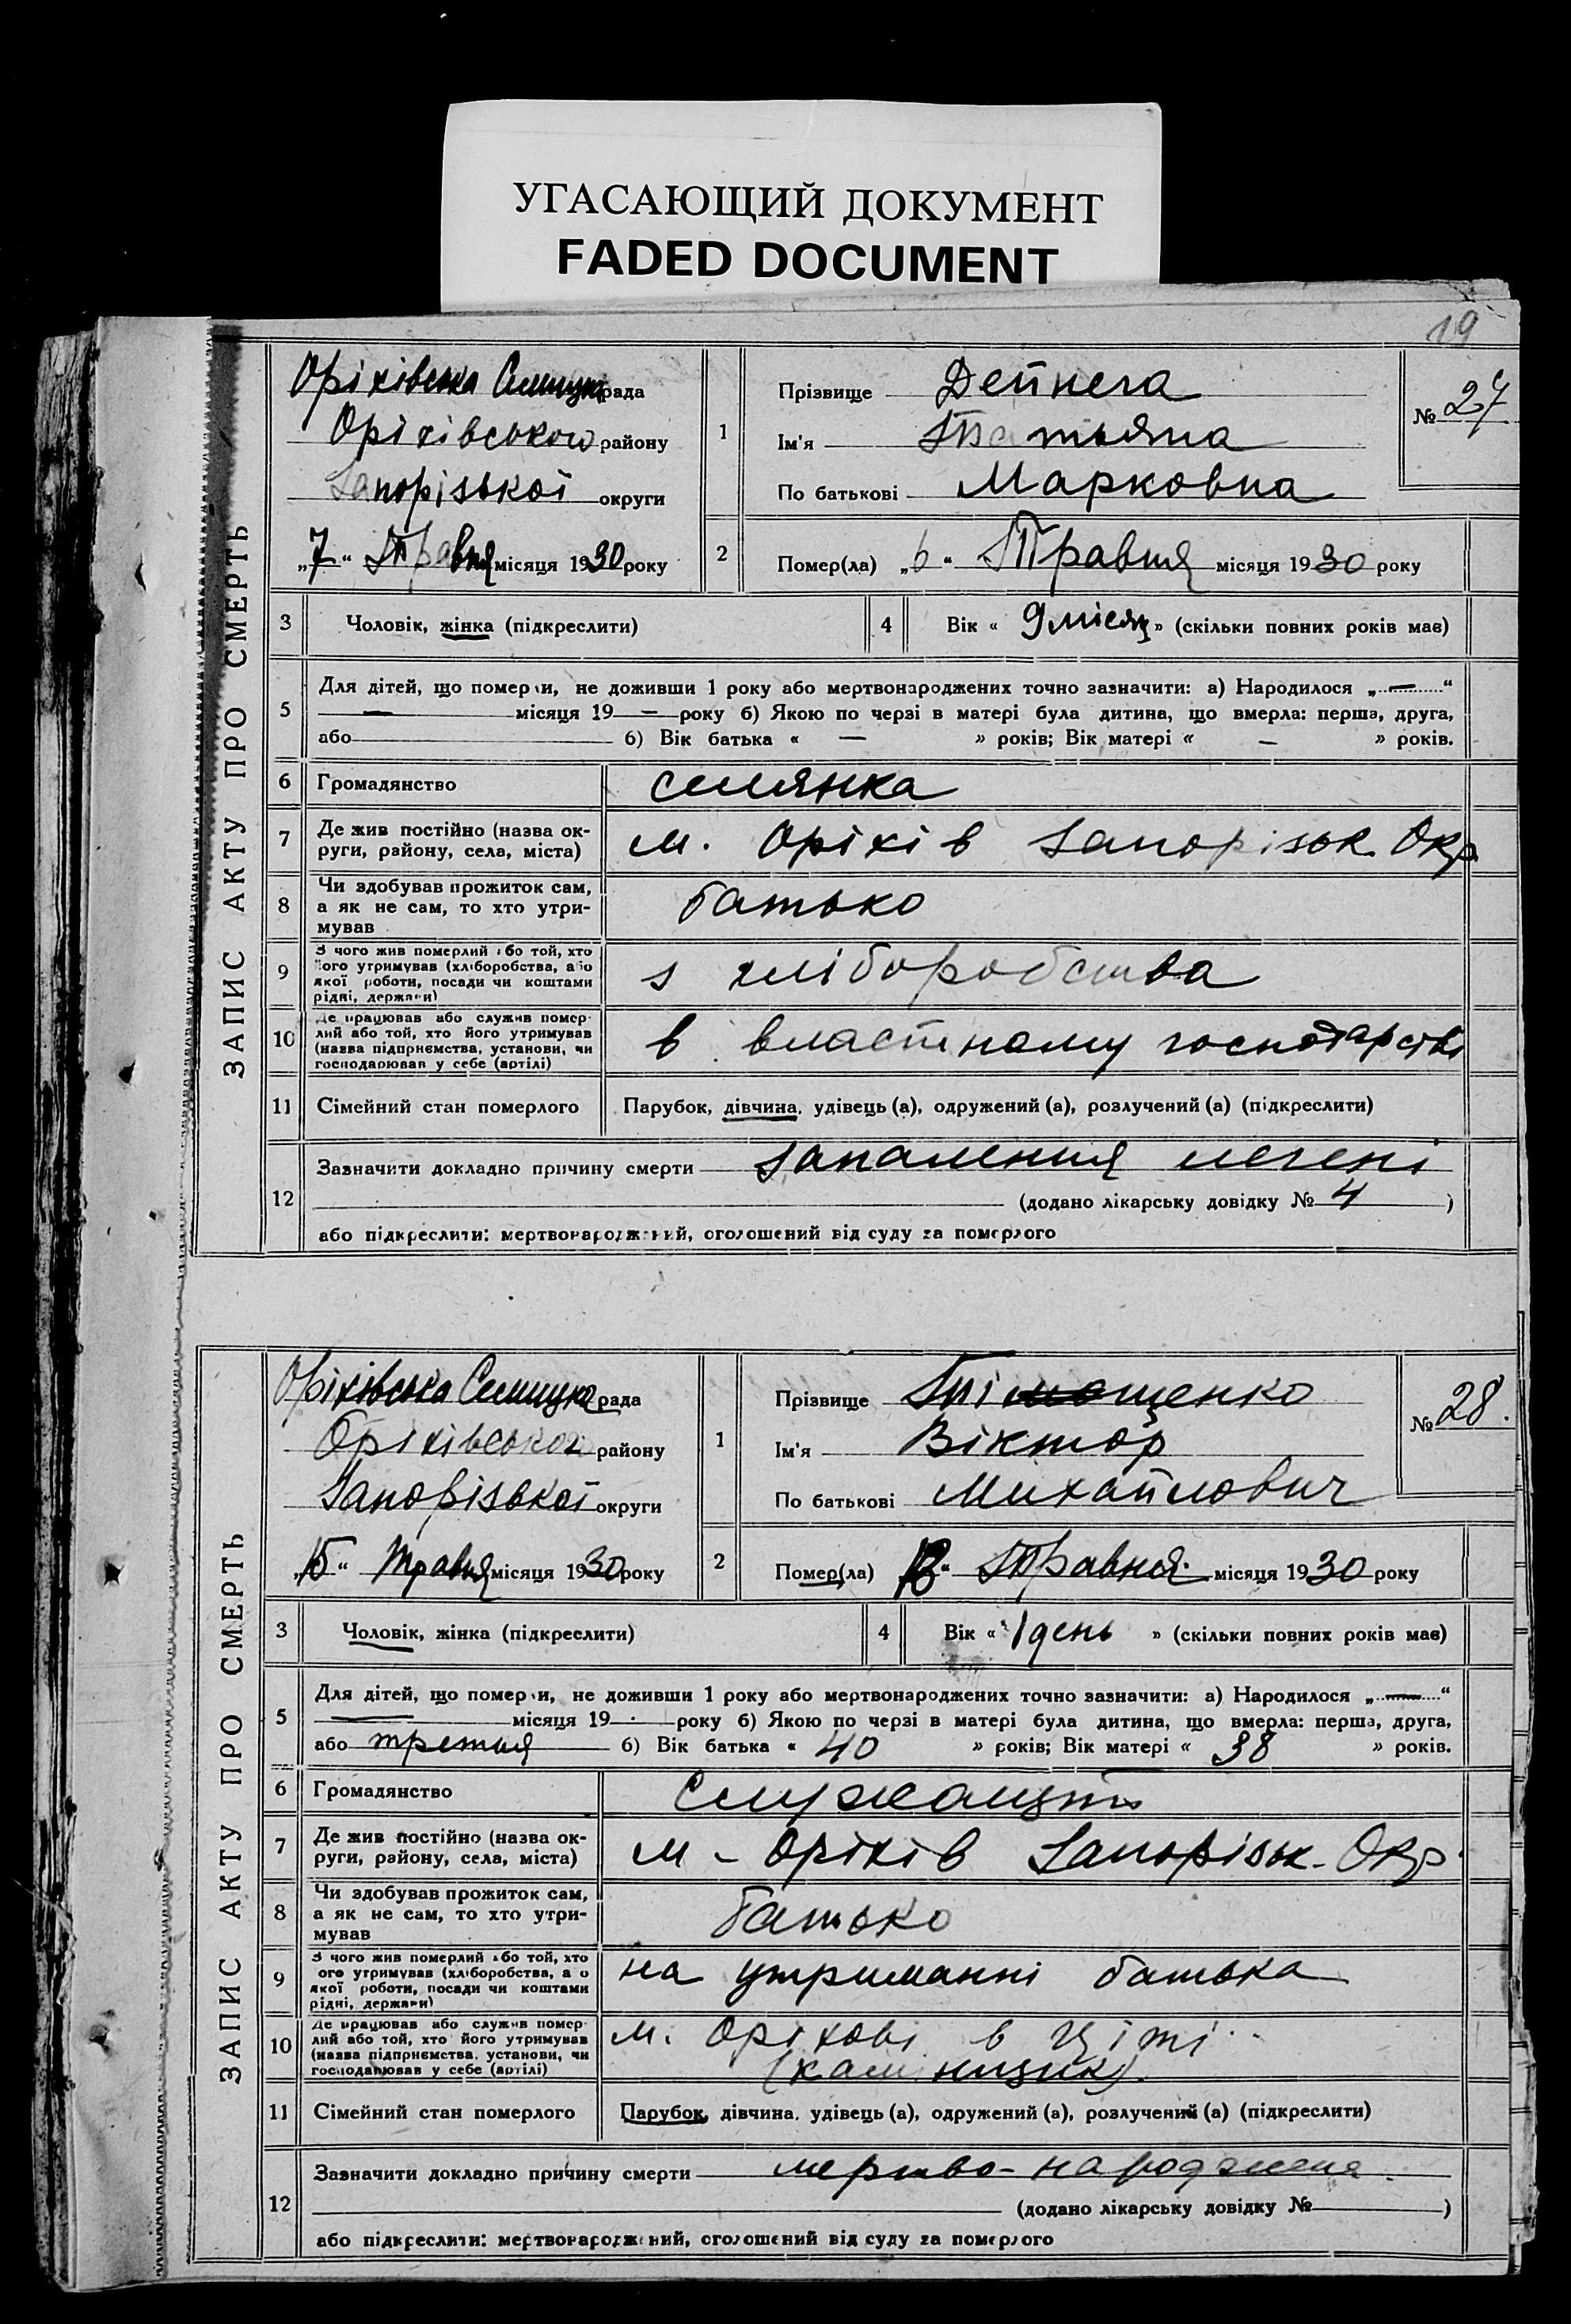 УГАСАЮЩИЙ ДОКУМЕНТ
FADED DOCUMENT
19
ЗАПИС АКТУ ПРО СМЕРТЬ
Оріхівська Селищна рада
Оріхівського району
Запорізької округи
„7“ Травня місяця 1930 року
1
Прізвище Дейнега
Ім'я Татьяна
По батькові Марковна
№ 27
2
Помер(ла) „6“ Травня місяця 1930 року
3 Чоловік, жінка (підкреслити)
4 Вік « 9 місяц » (скільки повних років має)
5 Для дітей, що померли, не доживши 1 року або мертвонароджених точно зазначити: а) Народилося „—“
— місяця 19 — року б) Якою по черзі в матері була дитина, що вмерла: перша, друга,
або 6) Вік батька « — » років; Вік матері « — » років.
6 Громадянство селянка
7 Де жив постійно (назва ок-
руги, району, села, міста) м. Оріхів Запорізьк. Окр
8 Чи здобував прожиток сам,
а як не сам, то хто утри-
мував батько
9 З чого жив померлий або той, хто
його утримував (хліборобства, або
якої роботи, посади чи коштами
рідні, держави) з хліборобства
10 Де працював або служив помер-
лий або той, хто його утримував
(назва підприємства, установи, чи
господарював у себе (артілі) в властному господарстві
11 Сімейний стан померлого Парубок, дівчина, удівець (а), одружений (а), розлучений (а) (підкреслити)
12 Зазначити докладно причину смерти запалення легені
(додано лікарську довідку № 4 )
або підкреслити: мертвонароджений, оголошений від суду за померлого
ЗАПИС АКТУ ПРО СМЕРТЬ
Оріхівська Селищна рада
Оріхівської району
Запорізької округи
„15“ Травня місяця 1930 року
1
Прізвище Тімощенко
Ім'я Віктор
По батькові Михайлович
№ 28.
2
Помер(ла) “ Травня місяця 1930 року
3 Чоловік, жінка (підкреслити)
4 Вік « 1 день » (скільки повних років має)
5 Для дітей, що померли, не доживши 1 року або мертвонароджених точно зазначити: а) Народилося „—“
— місяця 19 року б) Якою по черзі в матері була дитина, що вмерла: перша, друга,
або третья 6) Вік батька « 40 » років; Вік матері « 38 » років.
6 Громадянство
7 Де жив постійно (назва ок-
руги, району, села, міста) м - Оріхів Запорізьк. Окр.
8 Чи здобував прожиток сам,
а як не сам, то хто утри-
мував батько
9 З чого жив померлий або той, хто
ого утримував (хліборобства, або
якої роботи, посади чи коштами
рідні, держави) на утриманні батька
10 Де працював або служив помер-
лий або той, хто його утримував
(назва підприємства, установи, чи
господарював у себе (артілі) м. Оріхові в
11 Сімейний стан померлого Парубок, дівчина, удівець (а), одружений (а), розлучений (а) (підкреслити)
12 Зазначити докладно причину смерти мертво-народжена
(додано лікарську довідку № )
або підкреслити: мертвонароджений, оголошений від суду за померлого